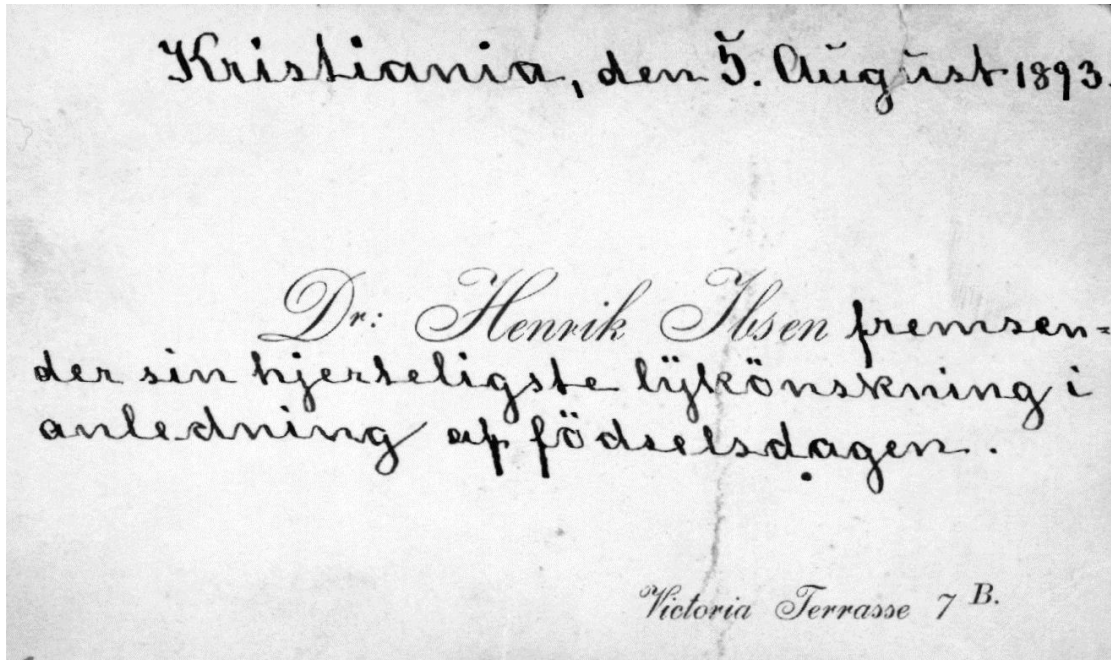 Kristiania, den 5. August 1893.
Dr: Henrik Ibsen fremsen=
der sin hjerteligste lÿkönskning i
anledning af födselsdagen.
Victoria Terrasse 7 B.